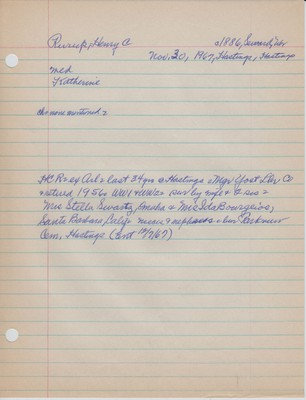 Rusup, Henry A     a1886, Seward, Nebr
Nov. 30, 1967, Hastings, Hastings
mch
Katherine
HCR ex Aub last 34yrs Hastings Mgr Yost Lbr Co
retired 1956 WW1 & WW2 surv by wife & 2 sis =
Mrs Stella Swarty, Omaha & Mrs Ida Bourgeois,
Santa Barbara, Calif nieces & nephews bur Parkview
Cem, Hastings (Cert 12/7/67)